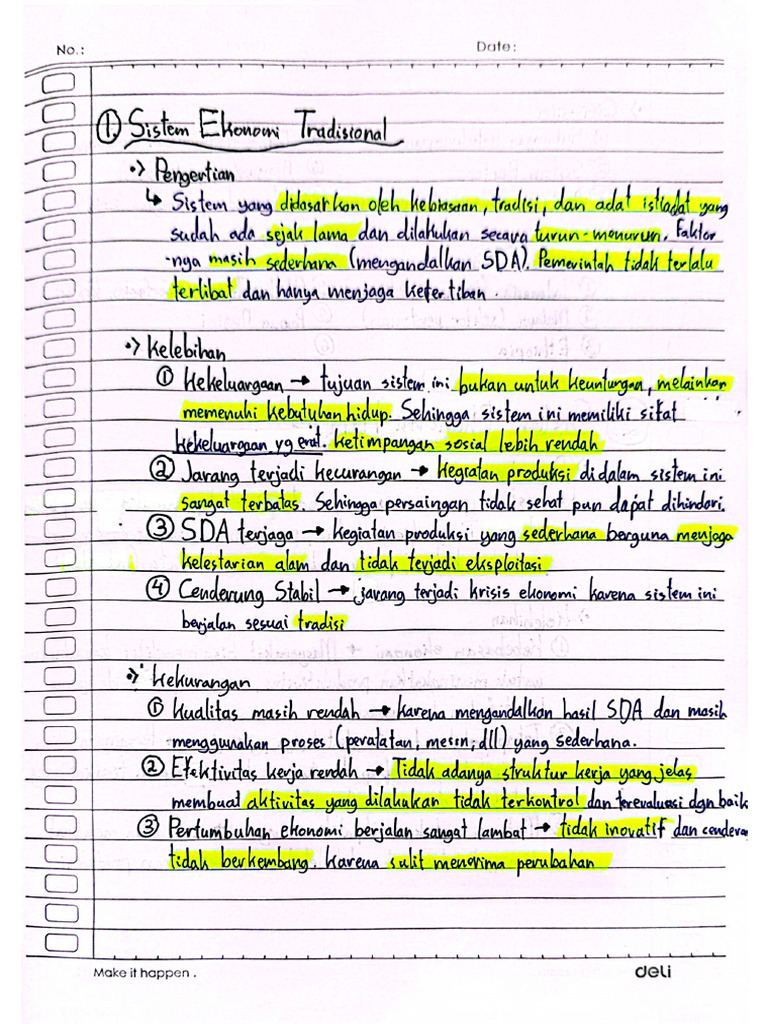 No.: Date:
① Sistem Ekonomi Tradisional
•> Pengertian
↳ Sistem yang didasarkan oleh kebiasaan, tradisi, dan adat istiadat yang
sudah ada sejak lama dan dilakukan secara turun-menurun. Faktor
-nya masih sederhana (mengandalkan SDA). Pemerintah tidak terlalu
terlibat dan hanya menjaga ketertiban.
•> Kelebihan
① Kekeluargaan → tujuan sistem ini bukan untuk keuntungan, melainkan
memenuhi kebutuhan hidup. Sehingga sistem ini memiliki sifat
kekeluargaan yg erat. ketimpangan sosial lebih rendah
② Jarang terjadi kecurangan → kegiatan produksi didalam sistem ini
sangat terbatas. Sehingga persaingan tidak sehat pun dapat dihindari.
③ SDA terjaga → kegiatan produksi yang sederhana berguna menjaga
kelestarian alam dan tidak terjadi eksploitasi
④ Cenderung Stabil → jarang terjadi krisis ekonomi karena sistem ini
berjalan sesuai tradisi
•> Kekurangan
① Kualitas masih rendah → karena mengandalkan hasil SDA dan masih
menggunakan proses (peralatan, mesin, dll) yang sederhana.
② Efektivitas kerja rendah → Tidak adanya struktur kerja yang jelas
membuat aktivitas yang dilakukan tidak terkontrol dan terevaluasi dgn baik
③ Pertumbuhan ekonomi berjalan sangat lambat → tidak inovatif dan cenderu
tidak berkembang. Karena sulit menerima perubahan
Make it happen. deli